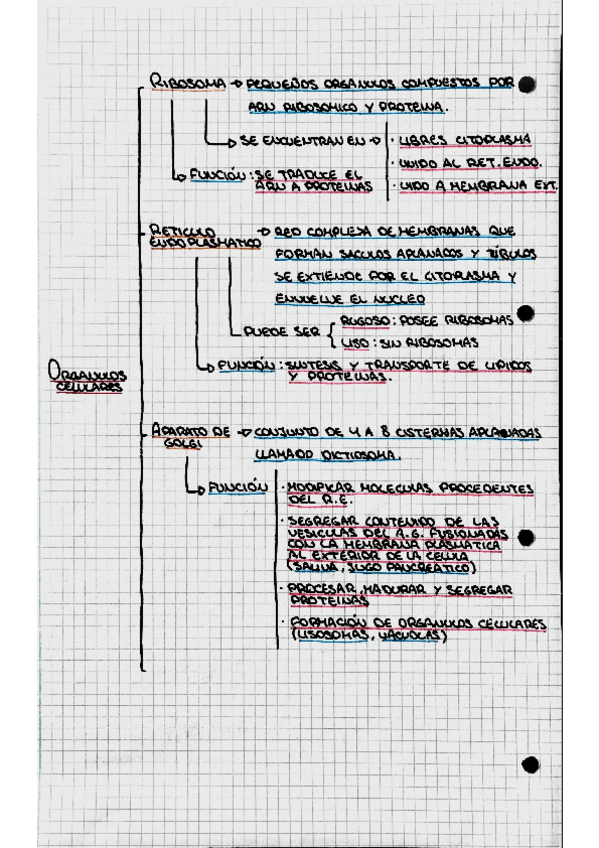 RIBOSOMA → PEQUEÑOS ORGANULOS COMPUESTOS POR
ARN RIBOSOMICO Y PROTEINA.
SE ENCUENTRAN EN → · LIBRES CITOPLASMA
· UNIDO AL RET. ENDO.
· UIDO A MEMBRANA EXT.
FUNCIÓN: SE TRADUCE EL
ARN A PROTEINAS
RETICULO
ENDOPLASMATICO → RED COMPLEJA DE MEMBRANAS QUE
FORMAN SACULOS APLANADOS Y TÚBULOS
SE EXTIENDE POR EL CITOPLASMA Y
ENVUELVE EL NUCLEO
PUEDE SER { RUGOSO: POSEE RIBOSOMAS
LISO: SIN RIBOSOMAS
FUNCIÓN: SINTESIS Y TRANSPORTE DE LIPIDOS
Y PROTEINAS.
ORGANULOS
CELULARES
APARATO DE
GOLGI → CONJUNTO DE 4 A 8 CISTERNAS APLANADAS
LLAMADO DICTIOSOMA.
FUNCIÓN
· MODIFICAR MOLECULAS PROCEDENTES
DEL R.E.
· SEGREGAR CONTENIDO DE LAS
VESICULAS DEL A.G. FUSIONADAS
CON LA MEMBRANA PLASMÁTICA
AL EXTERIOR DE LA CELULA
(SALIVA, JUGO PANCREATICO)
· PROCESAR, MADURAR Y SEGREGAR
PROTEINAS
· FORMACIÓN DE ORGANULOS CELULARES
(LISOSOMAS, VACUOLAS)